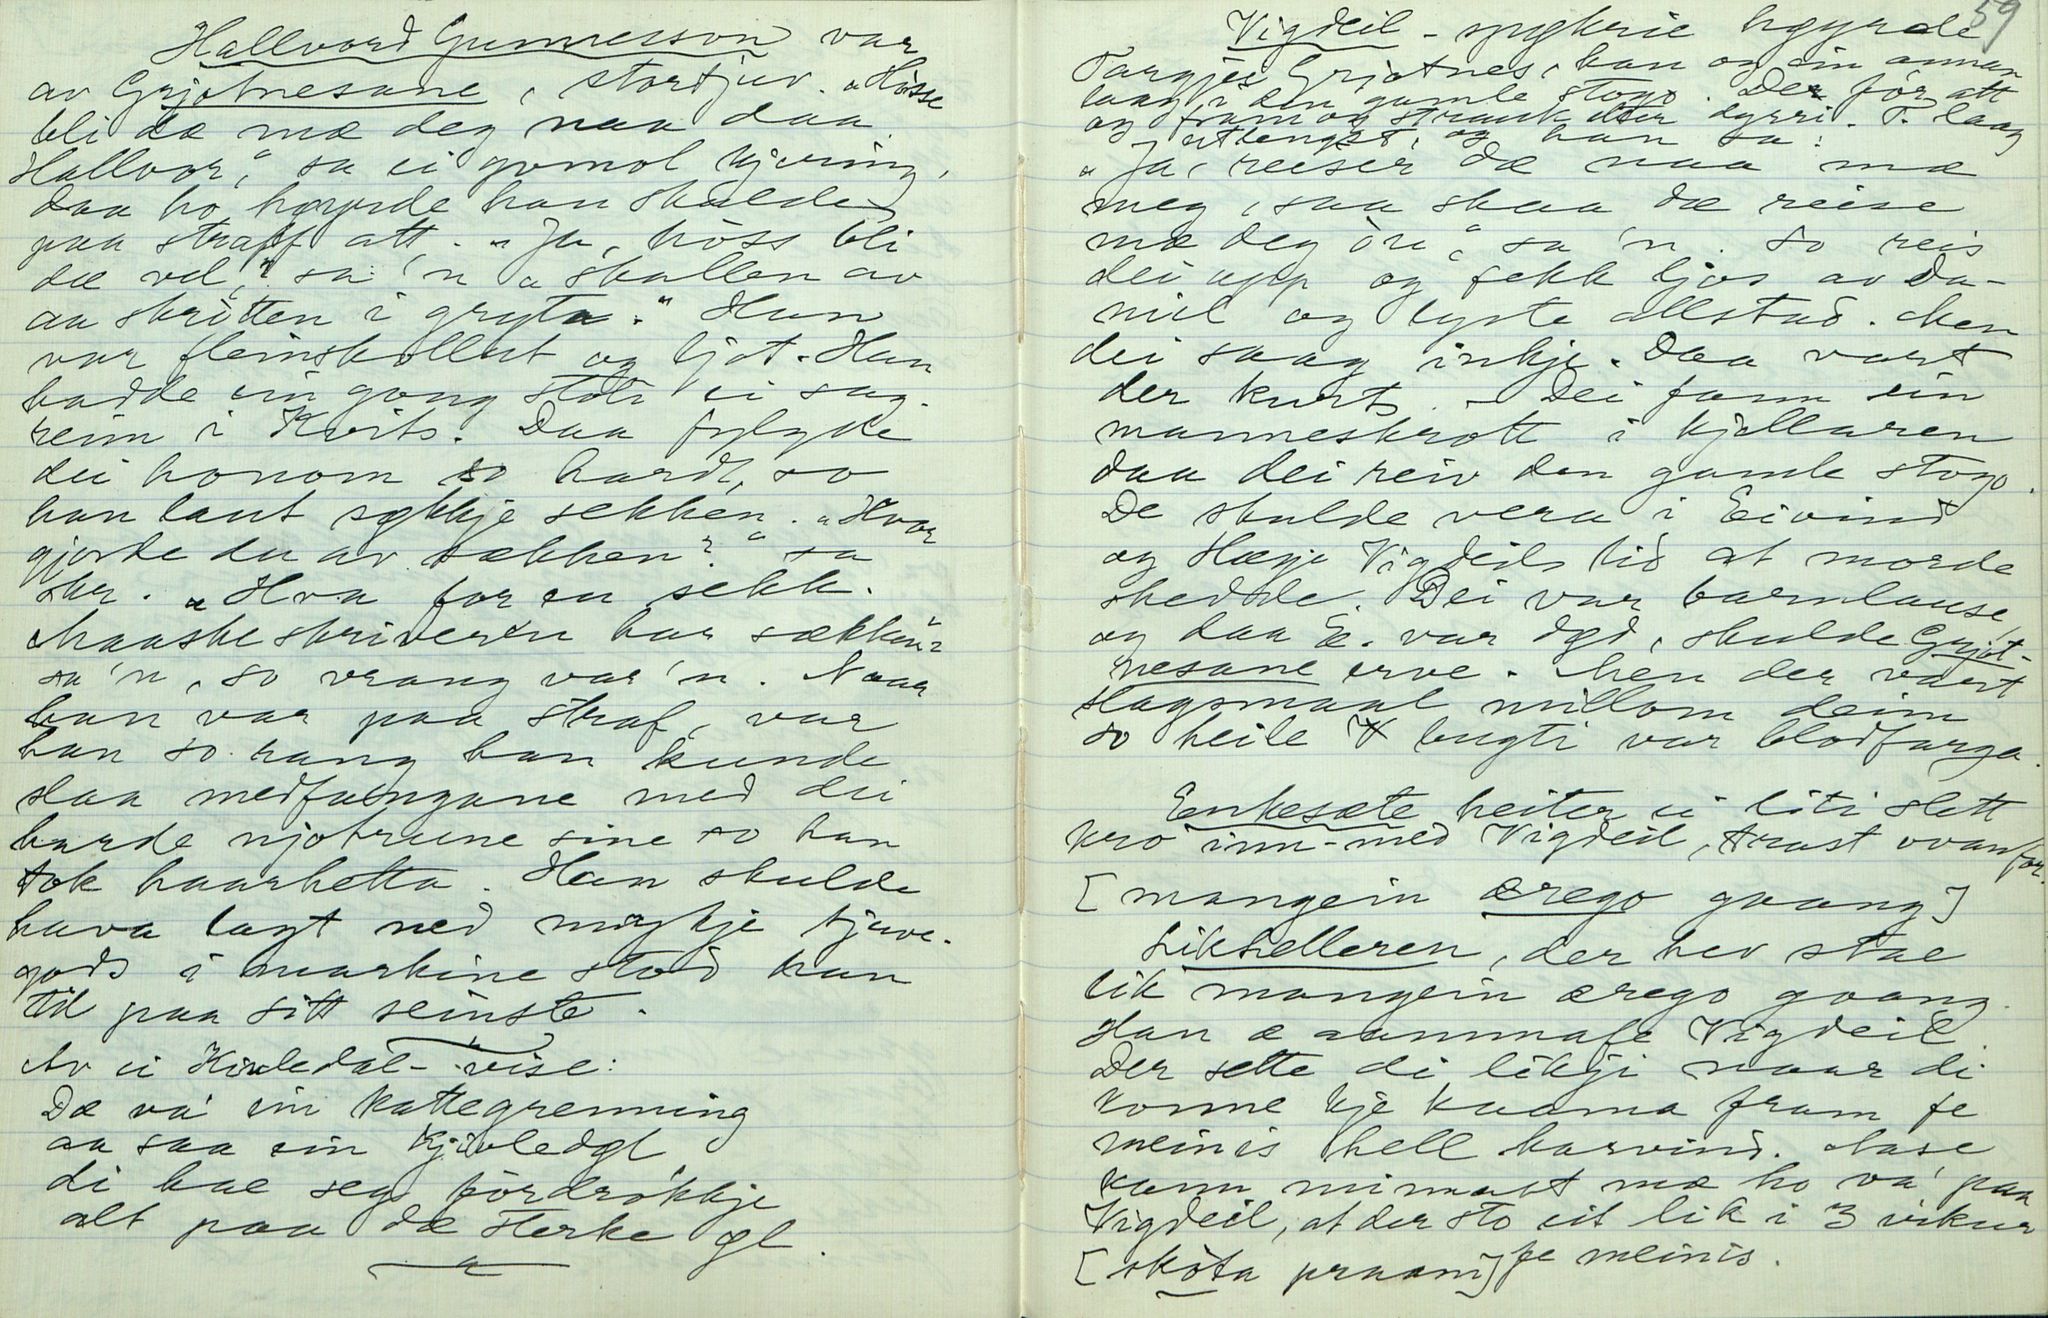 Hallvord Gunnersson var
av Grjotnesane, stortjuv. "Hösse
bli dæ mæ deg naa daa
Hallvor," sa ei gomol kjering,
daa ho höyrde han skulde
paa straff att. "Ja, höss bli
dæ vel," sa 'n "skallen av
aa skrotten i gryta." Han
var fleinskollut og ljot. Han
hadde ein gong stole ei sag-
reim i Kvits. Daa fylgde
dei honom so hardt, so
han laut sökkje sekken. "Hvor
gjorde du av sækken?" sa
skr. "Hva for en sekk.
Maaske skriveren har sækken"
sa 'n, so vrang var 'n. Naar
han var paa straf, var
han so rang han kunde
slaa medfangane med dei
harde njotrune sine so han
tok haarhetta. Han skulde
hava lagt ned mykje tjuve-
gods i markine stod han
til paa sitt seinste.
Av ei Kivledal-vise:
Dæ va' ein kattegrenning
aa saa ein Kjivledøl
di hae seg fördrökkje
alt paa dæ sterke øl.
59
Vigdeil-spøkrie høyrde
Targjei Grjotnes, han og ein annan
laag i den gamle stogo. Der för att
og fram og strauk etter dyrri. T. laag
utlengst, og han sa:
"Ja, reiser dæ naa mæ
meg, saa skaa dæ reise
mæ deg öu," sa 'n. So reis
dei upp og fekk ljos av Da-
niel og lyste allstad. Men
dei saag inkje. Daa vart
der kurt. - Dei fann ein
manneskrott i kjellaren
daa dei reiv den gamle stogo.
De skulde vera i Eivind
og Hæge Vigdeils tid at morde
skedde. Dei var barnlause,
og daa E. var død, skulde Grjot-
nesane erve. Men der vart
slagsmaal millom deim
so heile bugti var blodfarga.
Enkesæte heiter ei liti slett
kro inn-med Vigdeil, trast ovanfor.
[mangein ærego gaang]
Likhelleren, der hev stae
lik mangein ærego gaang.
Han æ aammafe Vigdeil.
Der sette di likji naar di
konne kje kaama fram fe
meinis hell harvind. Aase
kann minnast mæ ho va' paa
Vigdeil, at der sto eit lik i 3 vikur
[sköta praam] fe meinis.